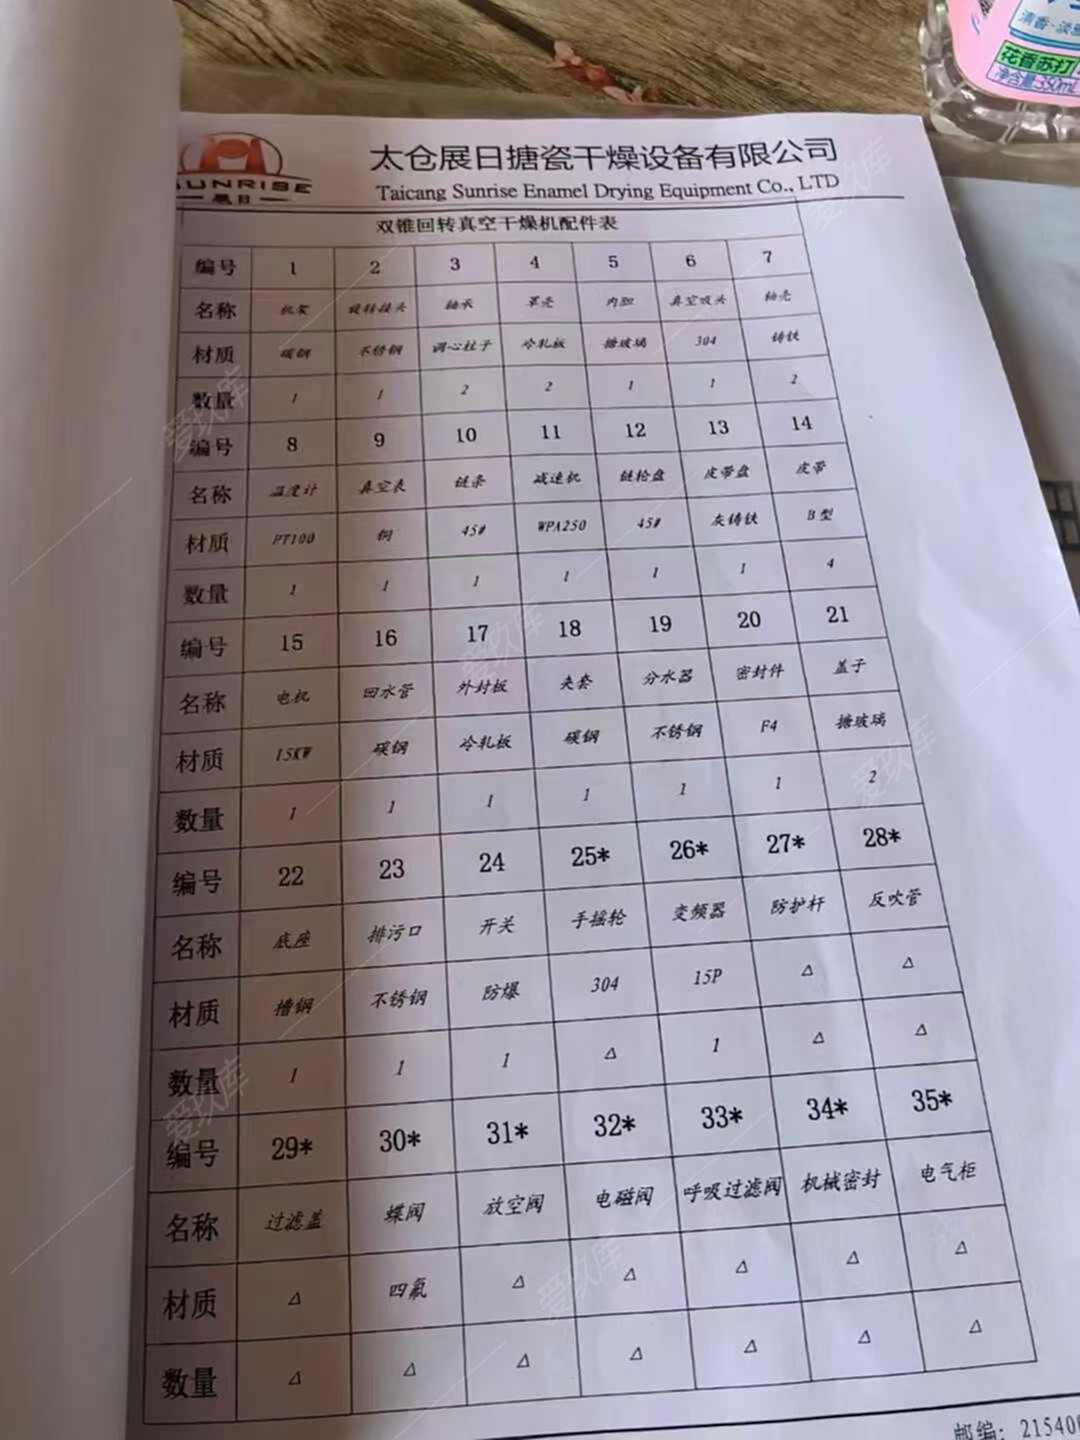 清香·淡雅
花香苏打
净含量350mL
SUNRISE
展日
太仓展日搪瓷干燥设备有限公司
Taicang Sunrise Enamel Drying Equipment Co., LTD
双锥回转真空干燥机配件表
编号 1 2 3 4 5 6 7
名称 机架 旋转接头 轴承 罩壳 内胆 真空吸头 轴壳
材质 碳钢 不锈钢 调心柱子 冷轧板 搪玻璃 304 铸铁
数量 1 1 2 2 1 1 2
编号 8 9 10 11 12 13 14
名称 温度计 真空表 链条 减速机 链轮盘 皮带盘 皮带
材质 PT100 铜 45# WPA250 45# 灰铸铁 B型
数量 1 1 1 1 1 1 4
编号 15 16 17 18 19 20 21
名称 电机 回水管 外封板 夹套 分水器 密封件 盖子
材质 15KW 碳钢 冷轧板 碳钢 不锈钢 F4 搪玻璃
数量 1 1 1 1 1 1 2
编号 22 23 24 25* 26* 27* 28*
名称 底座 排污口 开关 手摇轮 变频器 防护杆 反吹管
材质 槽钢 不锈钢 防爆 304 15P △ △
数量 1 1 1 △ 1 △ △
编号 29* 30* 31* 32* 33* 34* 35*
名称 过滤盖 蝶阀 放空阀 电磁阀 呼吸过滤阀 机械密封 电气柜
材质 △ 四氟 △ △ △ △ △
数量 △ △ △ △ △ △ △
邮编: 21540
爱玖库
爱玖库
爱玖库
爱玖库
爱玖库
爱玖库